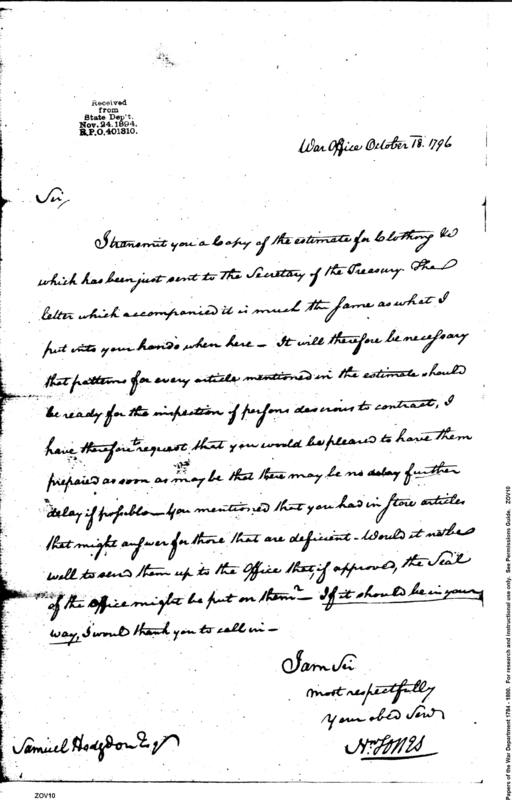 Received
from
State Dep't.
Nov. 24. 1894.
R.P.O. 401310.
War Office October 18. 1796
Sir,
I transmit you a Copy of the estimate for Clothing &c
which has been just sent to the Secretary of the Treasury. The
letter which accompanied it is much the same as what I
put into your hands when here - It will therefore be necessary
that patterns for every article mentioned in the estimate should
be ready for the inspection of persons desirous to contract, I
have therefore to request that you would be pleased to have them
prepared as soon as may be that there may be no delay further
delay if possible - You mentioned that you had in Store articles
that might answer for those that are deficient - Would it not be
well to send them up to the Office that, if approved, the Seal
of the office might be put on them? - If it should be in your
way, I would thank you to call in -
I am Sir
most respectfully
Your obed Serv
Wm Jones
Samuel Hodgdon Esqr
ZOV10
Papers of the War Department 1784 - 1800. For research and instructional use only. See Permissions Guide. ZOV10